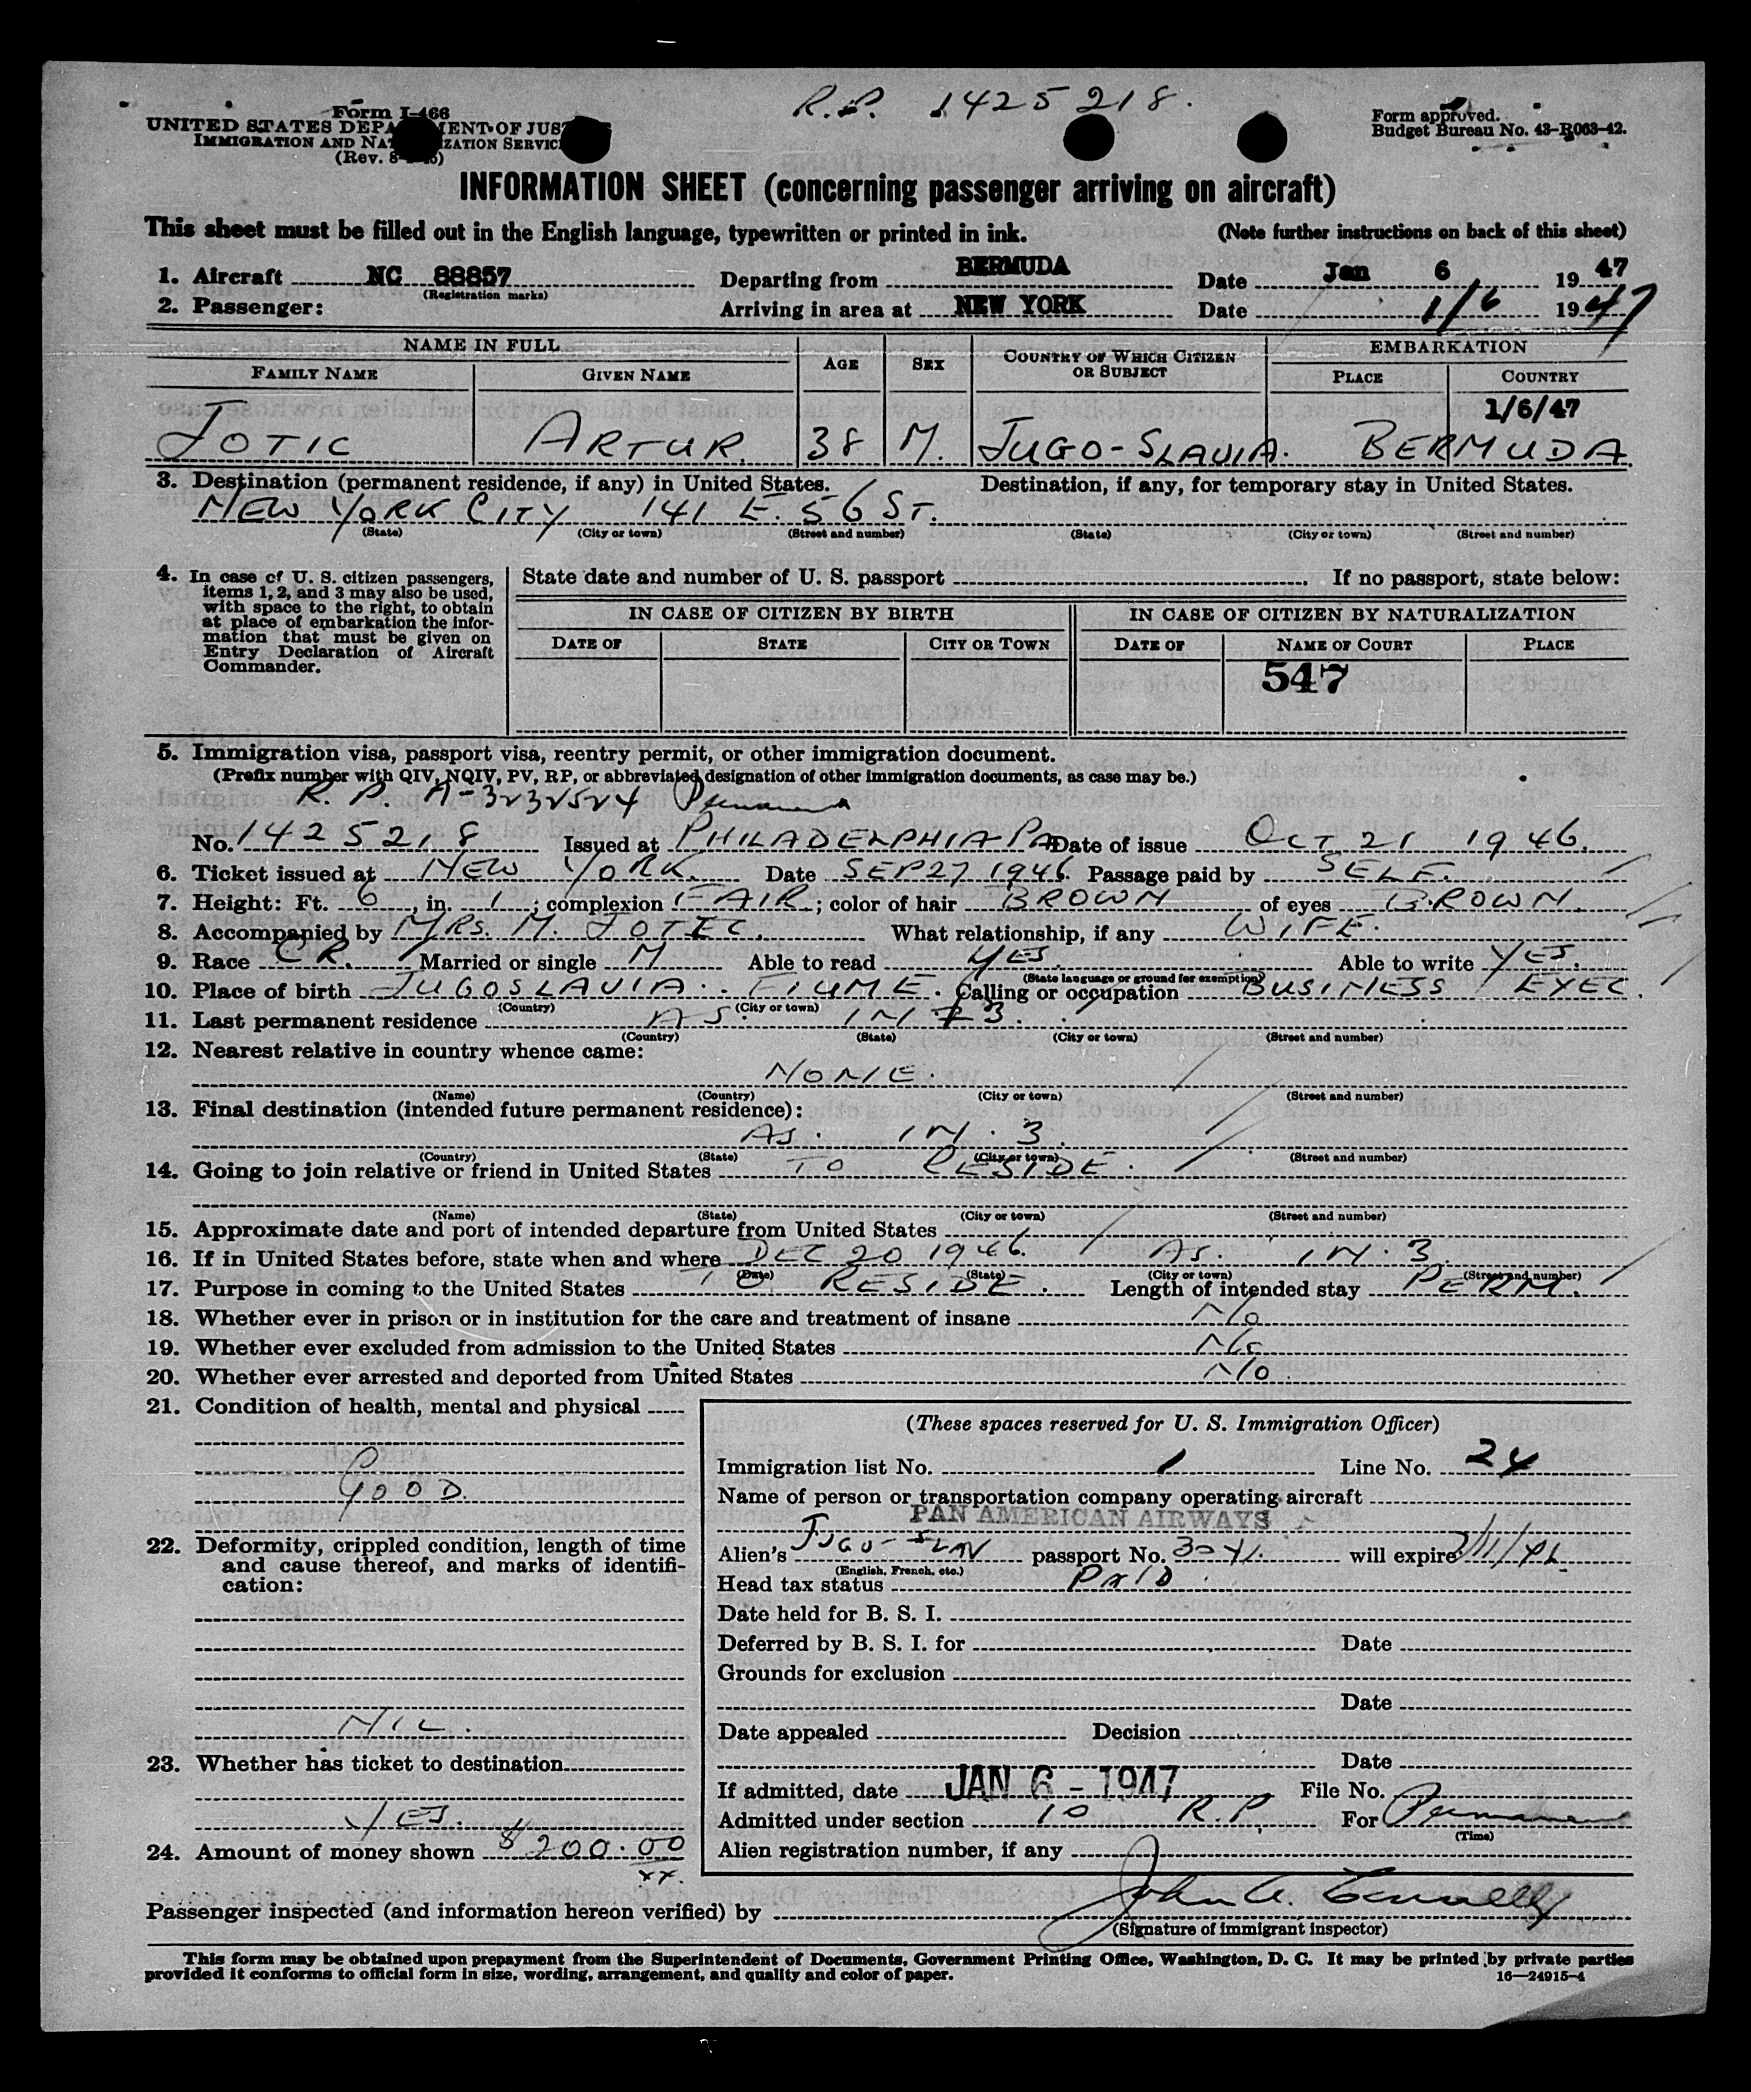 R.P. 1425218.
Form I-466
UNITED STATES DEPA ENT OF JUS
IMMIGRATION AND NAT ZATION SERVIC
(Rev. 8- )
Form approved.
Budget Bureau No. 43-R063-42.
INFORMATION SHEET (concerning passenger arriving on aircraft)
This sheet must be filled out in the English language, typewritten or printed in ink. (Note further instructions on back of this sheet)
1. Aircraft NC 88857 Departing from BERMUDA Date Jan 6 1947
(Registration marks)
2. Passenger: Arriving in area at NEW YORK Date 1/6 1947
NAME IN FULL AGE SEX COUNTRY OF WHICH CITIZEN OR SUBJECT EMBARKATION
FAMILY NAME GIVEN NAME PLACE COUNTRY
1/6/47
JOTIC ARTUR. 38 M. JUGO-SLAVIA. BERMUDA.
3. Destination (permanent residence, if any) in United States. Destination, if any, for temporary stay in United States.
NEW YORK CITY 141 E. 56 ST.
(State) (City or town) (Street and number) (State) (City or town) (Street and number)
4. In case of U. S. citizen passengers, items 1, 2, and 3 may also be used, with space to the right, to obtain at place of embarkation the information that must be given on Entry Declaration of Aircraft Commander.
State date and number of U. S. passport . If no passport, state below:
IN CASE OF CITIZEN BY BIRTH IN CASE OF CITIZEN BY NATURALIZATION
DATE OF STATE CITY OR TOWN DATE OF NAME OF COURT PLACE
547
5. Immigration visa, passport visa, reentry permit, or other immigration document.
(Prefix number with QIV, NQIV, PV, RP, or abbreviated designation of other immigration documents, as case may be.)
R. P. A-3232524
No. 1425218 Issued at PHILADELPHIA PA Date of issue OCT 21 1946.
6. Ticket issued at NEW YORK. Date SEP 27 1946. Passage paid by SELF.
7. Height: Ft. 6, in. 1; complexion FAIR; color of hair BROWN of eyes BROWN.
8. Accompanied by MRS. M. JOTIC. What relationship, if any WIFE.
9. Race CR. Married or single M Able to read YES. Able to write YES.
(State language or ground for exemption)
10. Place of birth JUGOSLAVIA. FIUME. Calling or occupation BUSINESS EXEC.
(Country) (City or town)
11. Last permanent residence AS. IN 3.
(Country) (State) (City or town) (Street and number)
12. Nearest relative in country whence came:
NONE.
(Name) (Country) (City or town) (Street and number)
13. Final destination (intended future permanent residence):
AS. IN. 3.
(Country) (State) (City or town) (Street and number)
14. Going to join relative or friend in United States TO RESIDE.
(Name) (State) (City or town) (Street and number)
15. Approximate date and port of intended departure from United States
16. If in United States before, state when and where DEC 20 1946. AS. IN. 3.
(Date) (State) (City or town) (Street and number)
17. Purpose in coming to the United States TO RESIDE. Length of intended stay PERM.
18. Whether ever in prison or in institution for the care and treatment of insane No
19. Whether ever excluded from admission to the United States No
20. Whether ever arrested and deported from United States No
21. Condition of health, mental and physical
GOOD.
22. Deformity, crippled condition, length of time and cause thereof, and marks of identification:
NIL.
23. Whether has ticket to destination
YES.
24. Amount of money shown $200.00
xx.
(These spaces reserved for U. S. Immigration Officer)
Immigration list No. 1 Line No. 24
Name of person or transportation company operating aircraft
PAN AMERICAN AIRWAYS
Alien's JUGO-SLAV passport No. will expire
(English, French, etc.)
Head tax status PAID
Date held for B. S. I.
Deferred by B. S. I. for Date
Grounds for exclusion
Date
Date appealed Decision
Date
If admitted, date JAN 6 - 1947 File No.
Admitted under section 10 R.P. For Permanent
(Time)
Alien registration number, if any
Passenger inspected (and information hereon verified) by John A.
(Signature of immigrant inspector)
This form may be obtained upon prepayment from the Superintendent of Documents, Government Printing Office, Washington, D. C. It may be printed by private parties
provided it conforms to official form in size, wording, arrangement, and quality and color of paper. 16—24915-4